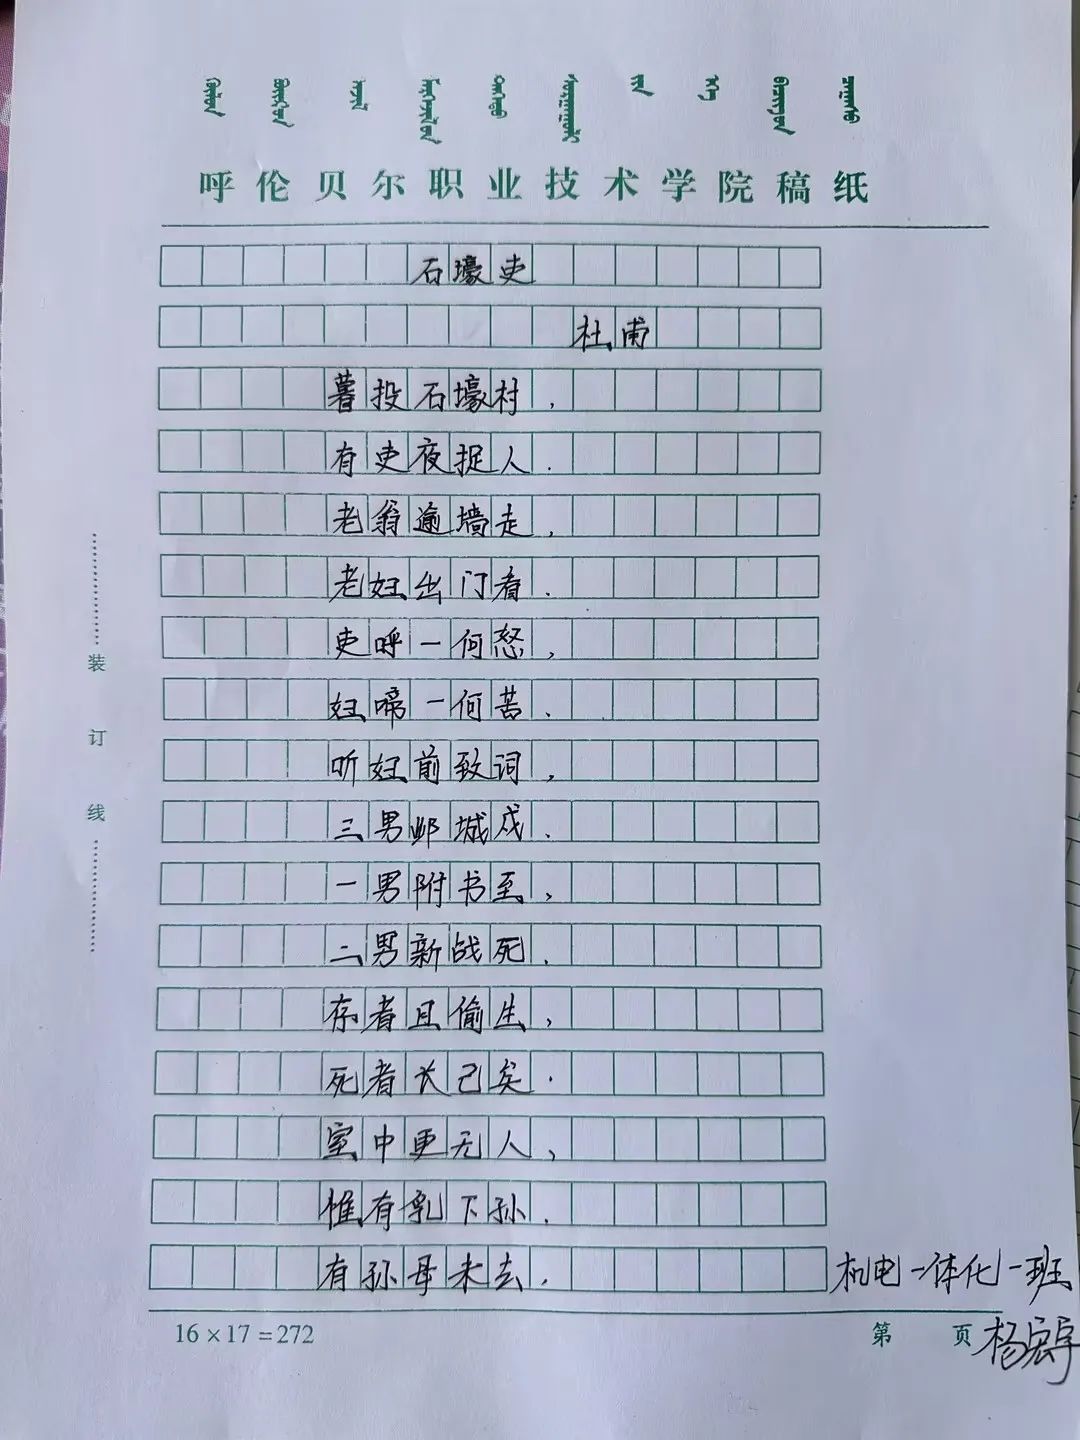 呼伦贝尔职业技术学院稿纸
石壕吏
杜甫
暮投石壕村，
有吏夜捉人.
老翁逾墙走，
老妇出门看.
吏呼一何怒，
妇啼一何苦.
听妇前致词，
三男邺城戍.
一男附书至，
二男新战死.
存者且偷生，
死者长己矣.
室中更无人，
惟有乳下孙.
有孙母未去.
机电一体化一班
杨宏宇
装订线
16×17=272
第 页